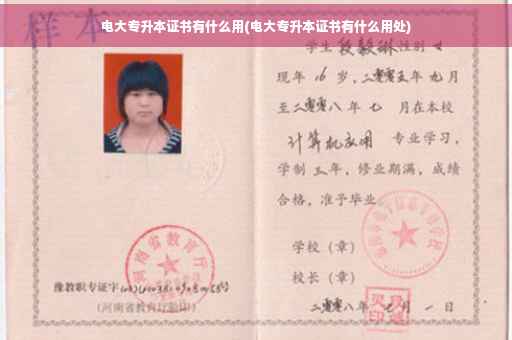 电大专升本证书有什么用(电大专升本证书有什么用处)
样本
学生 段毅琳 性别 女
现年 16 岁，二零零五年 九月
至二零零八年 七 月在本校
计算机应用 专业学习，
学制 三年，修业期满，成绩
合格，准予毕业
学校（章）
校长（章）
二零零八年 七 月 一 日
河南省教育厅
豫教职专证字
(河南省教育厅验印)